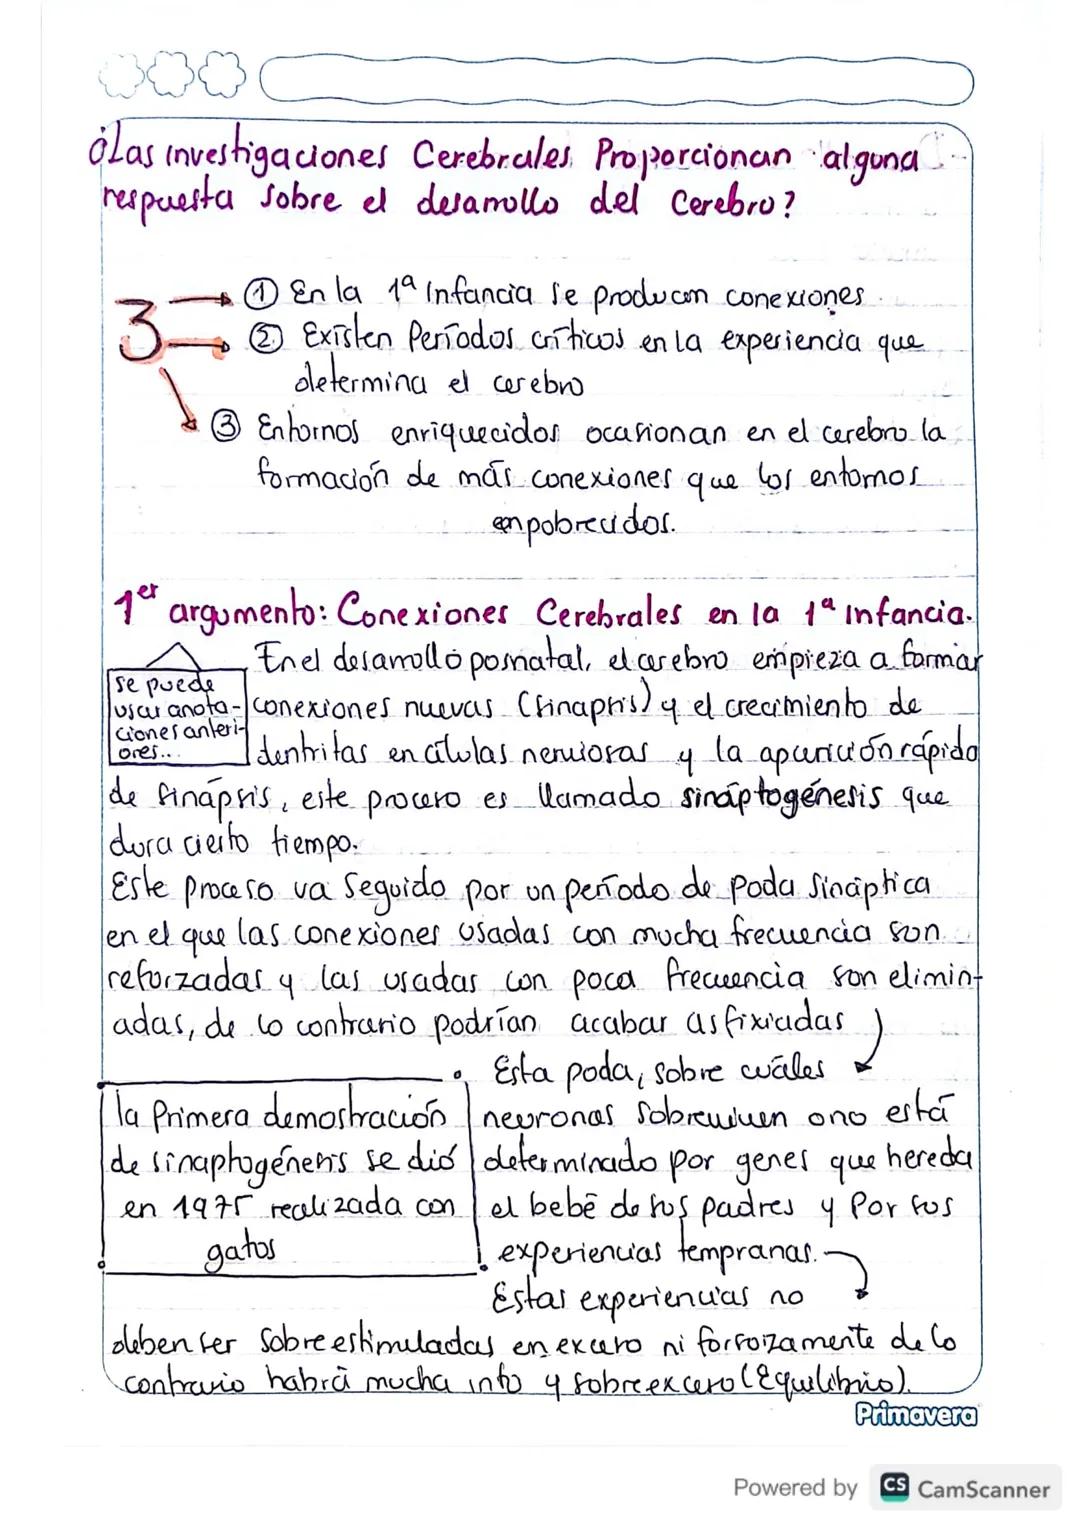 ¿Las investigaciones Cerebrales Proporcionan alguna
respuesta sobre el desarrollo del Cerebro?
3
① En la 1ª infancia se producen conexiones
② Existen Períodos críticos en la experiencia que
determina el cerebro
③ Entornos enriquecidos ocasionan en el cerebro la
formación de más conexiones que los entornos
enpobrecidos.
1er argumento: Conexiones Cerebrales en la 1ª infancia.
se puede
usar anota-
ciones anteri-
ores...
En el desarrollo posnatal, el cerebro empieza a formar
conexiones nuevas (sinapsis) y el crecimiento de
dentritas en células nerviosas y la aparición rápida
de sinápsis, este proceso es llamado sináptogénesis que
dura cierto tiempo.
Este proceso va seguido por un período de poda sináptica
en el que las conexiones usadas con mucha frecuencia son
reforzadas y las usadas con poca frecuencia son elimin-
adas, de lo contrario podrían acabar asfixiadas
Esta poda, sobre cuáles
neuronas sobreviven o no está
determinado por genes que hereda
el bebé de sus padres y Por sus
experiencias tempranas.
la Primera demostración
de sinaptogénesis se dió
en 1975 realizada con
gatos
Estas experiencias no
deben ser sobreestimuladas en exceso ni forzoizamente de lo
contrario habrá mucha info y sobreexceso (Equilibrio).
Primavera
Powered by CS CamScanner